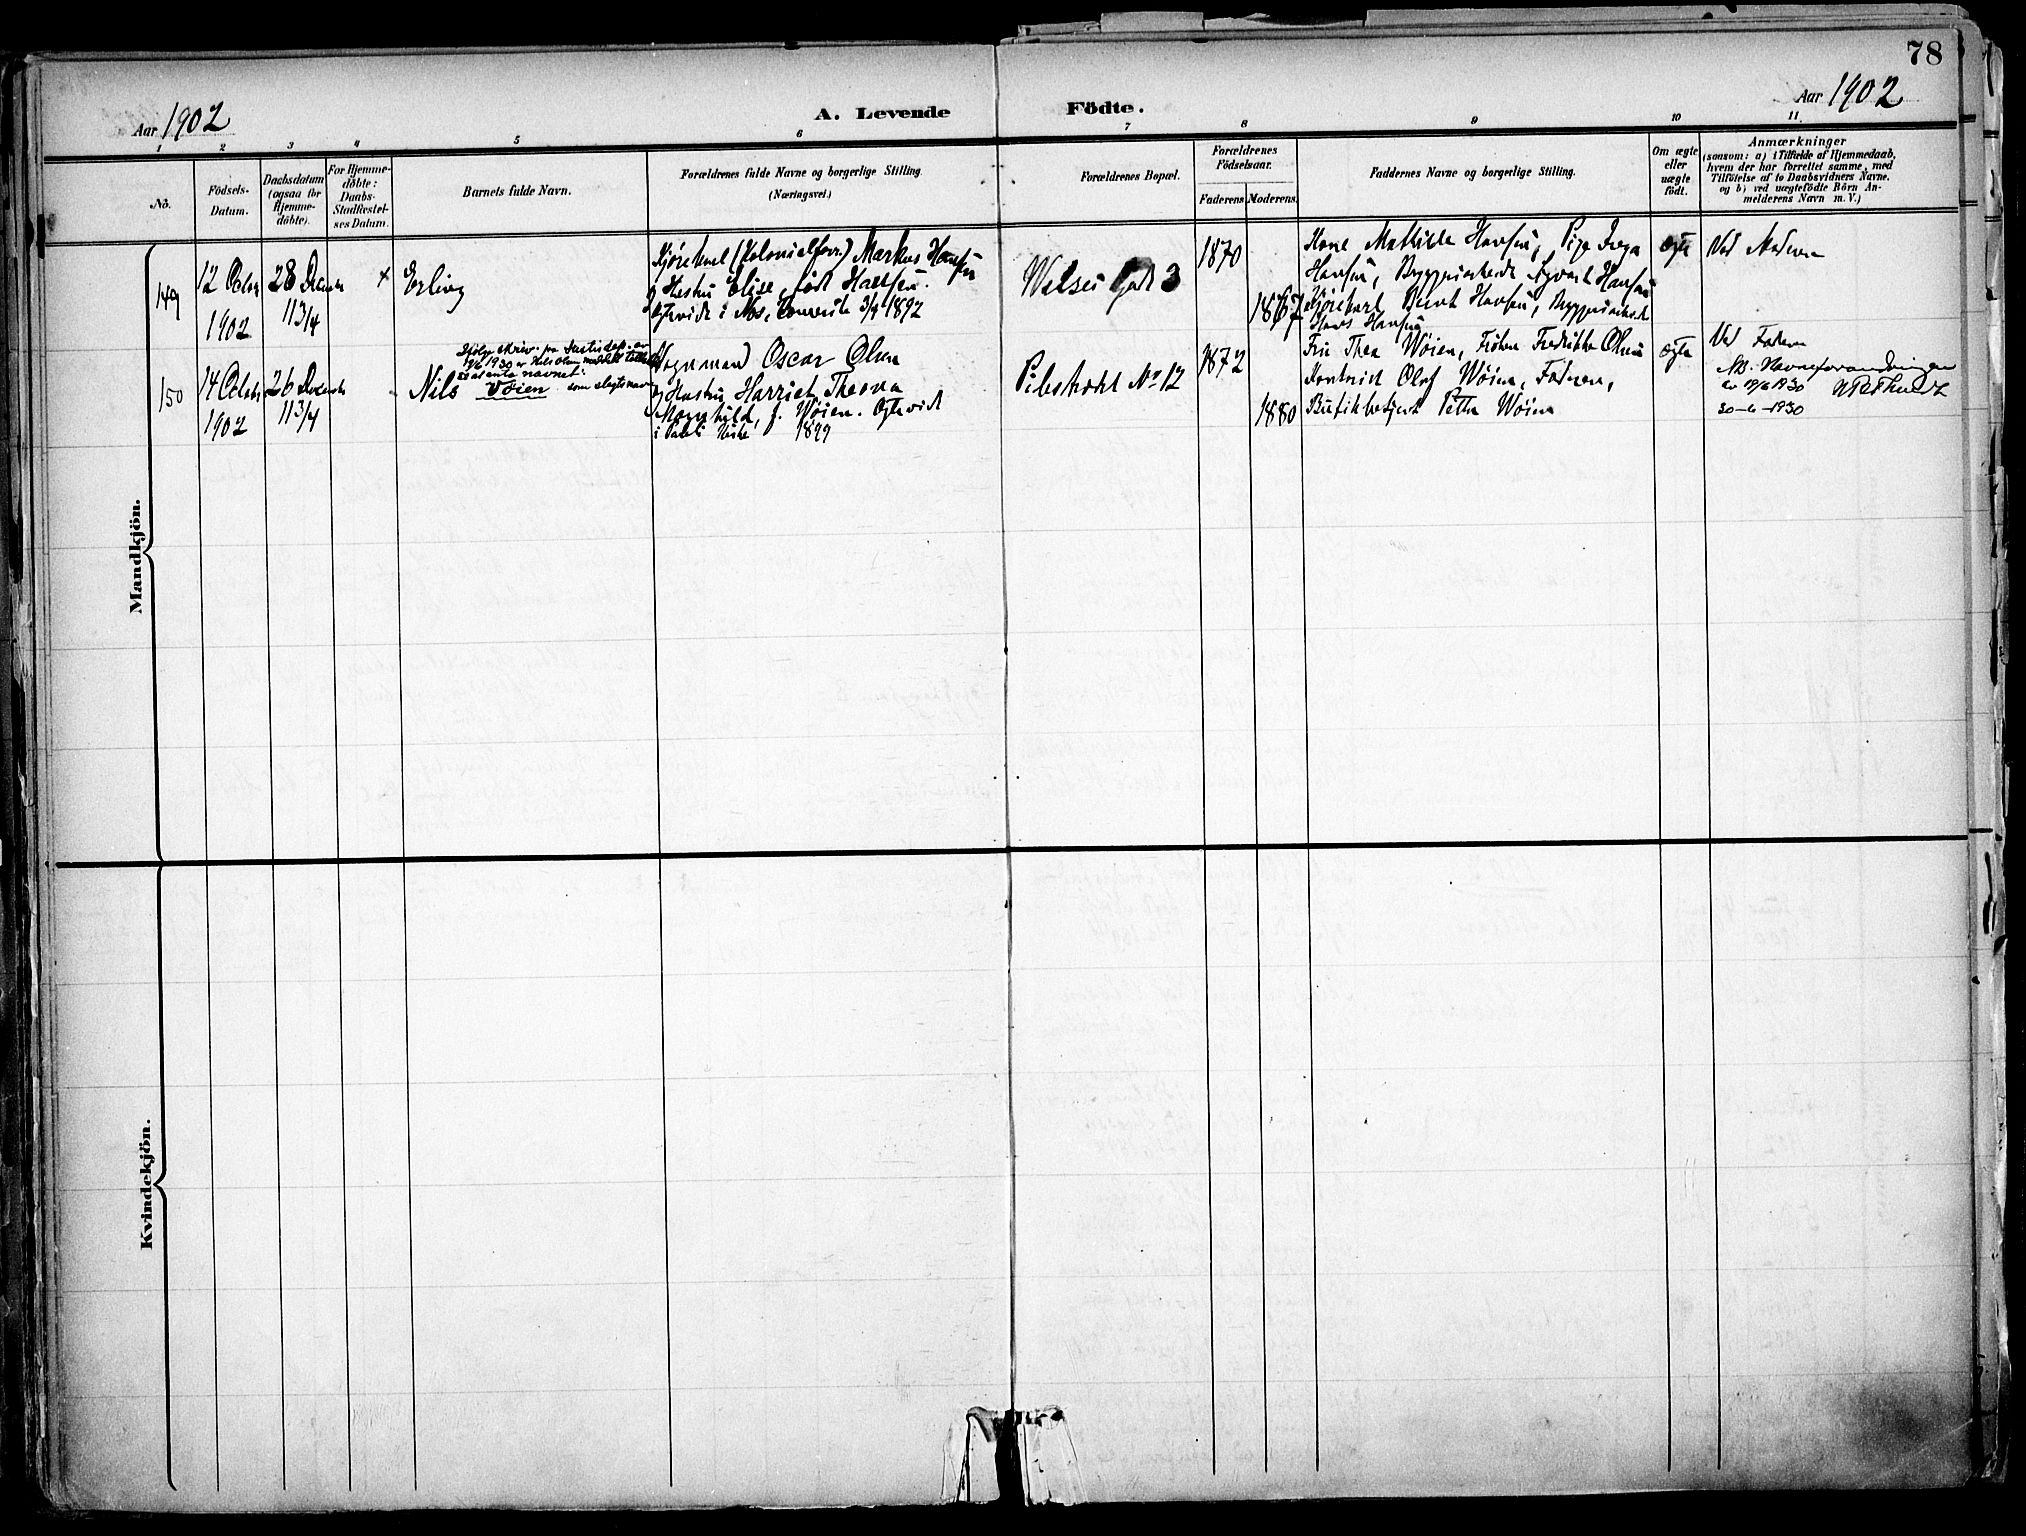 78
Aar 1902
A. Levende Födte.
Aar 1902
1 2 3 4 5 6 7 8 9 10 11.
No.
Födsels-
Datum.
Daabsdatum
(ogsaa for
Hjemme-
döbte).
For Hjemme-
döbte:
Daabs-
Stadfæstel-
ses Datum.
Barnets fulde Navn.
Forældrenes fulde Navne og borgerlige Stilling.
(Næringsvei.)
Forældrenes Bopæl.
Forældrenes
Födselsaar.
Faderens. Moderens.
Faddernes Navne og borgerlige Stilling.
Om ægte
eller
uægte
födt.
Anmærkninger
(saasom: a) i Tilfælde af Hjemmedaab,
hvem der har forrettet samme, med
Tilföielse af to Daabsvidners Navne.
og b) ved uægtefödte Börn An-
melderens Navn m. V.)
Mandkjön.
149
12 Octbr
1902
28 Decemb
11 3/4
+
Erling
Kjörekarl (Kolonialforr.) Markus Hansen
og Hustru Elise, född
Ægtevidt i 3/9 1892
Gade 3
1870
1867
Kone Mathilde Hansen, Pige Inga
Hansen, Bryggeriarbeider Hansen
Kjörekarl Bernt Hansen, Bryggeriarbeide
Hans Hansen
ægte
Ved Moderen
150
14 Octob
1902
26 Decemb
11 3/4
Nils
Ifölge skriv. fra Justisdep. av
19/6 1930 er Nils Olsen meddelt tillat.
til at anta navnet:
Wöien som slegtsnavn
Vognmand Oscar Olsen
og Hustru Harriet Theona
Magnhild, f. Wöien. Ægteviet
i Pauli Kirke 1899
Pilestrædet No 12
1872
1880
Fru Thea Wöien, Fröken Fredrikke Olsen
Kontorist Olaf Wöien, Faderen,
Butikbetjent Petter Wöien
ægte
Ved Faderen
NB. Navneforandringen
av 19/6 1930
30-6-1930
Kvindekjön.